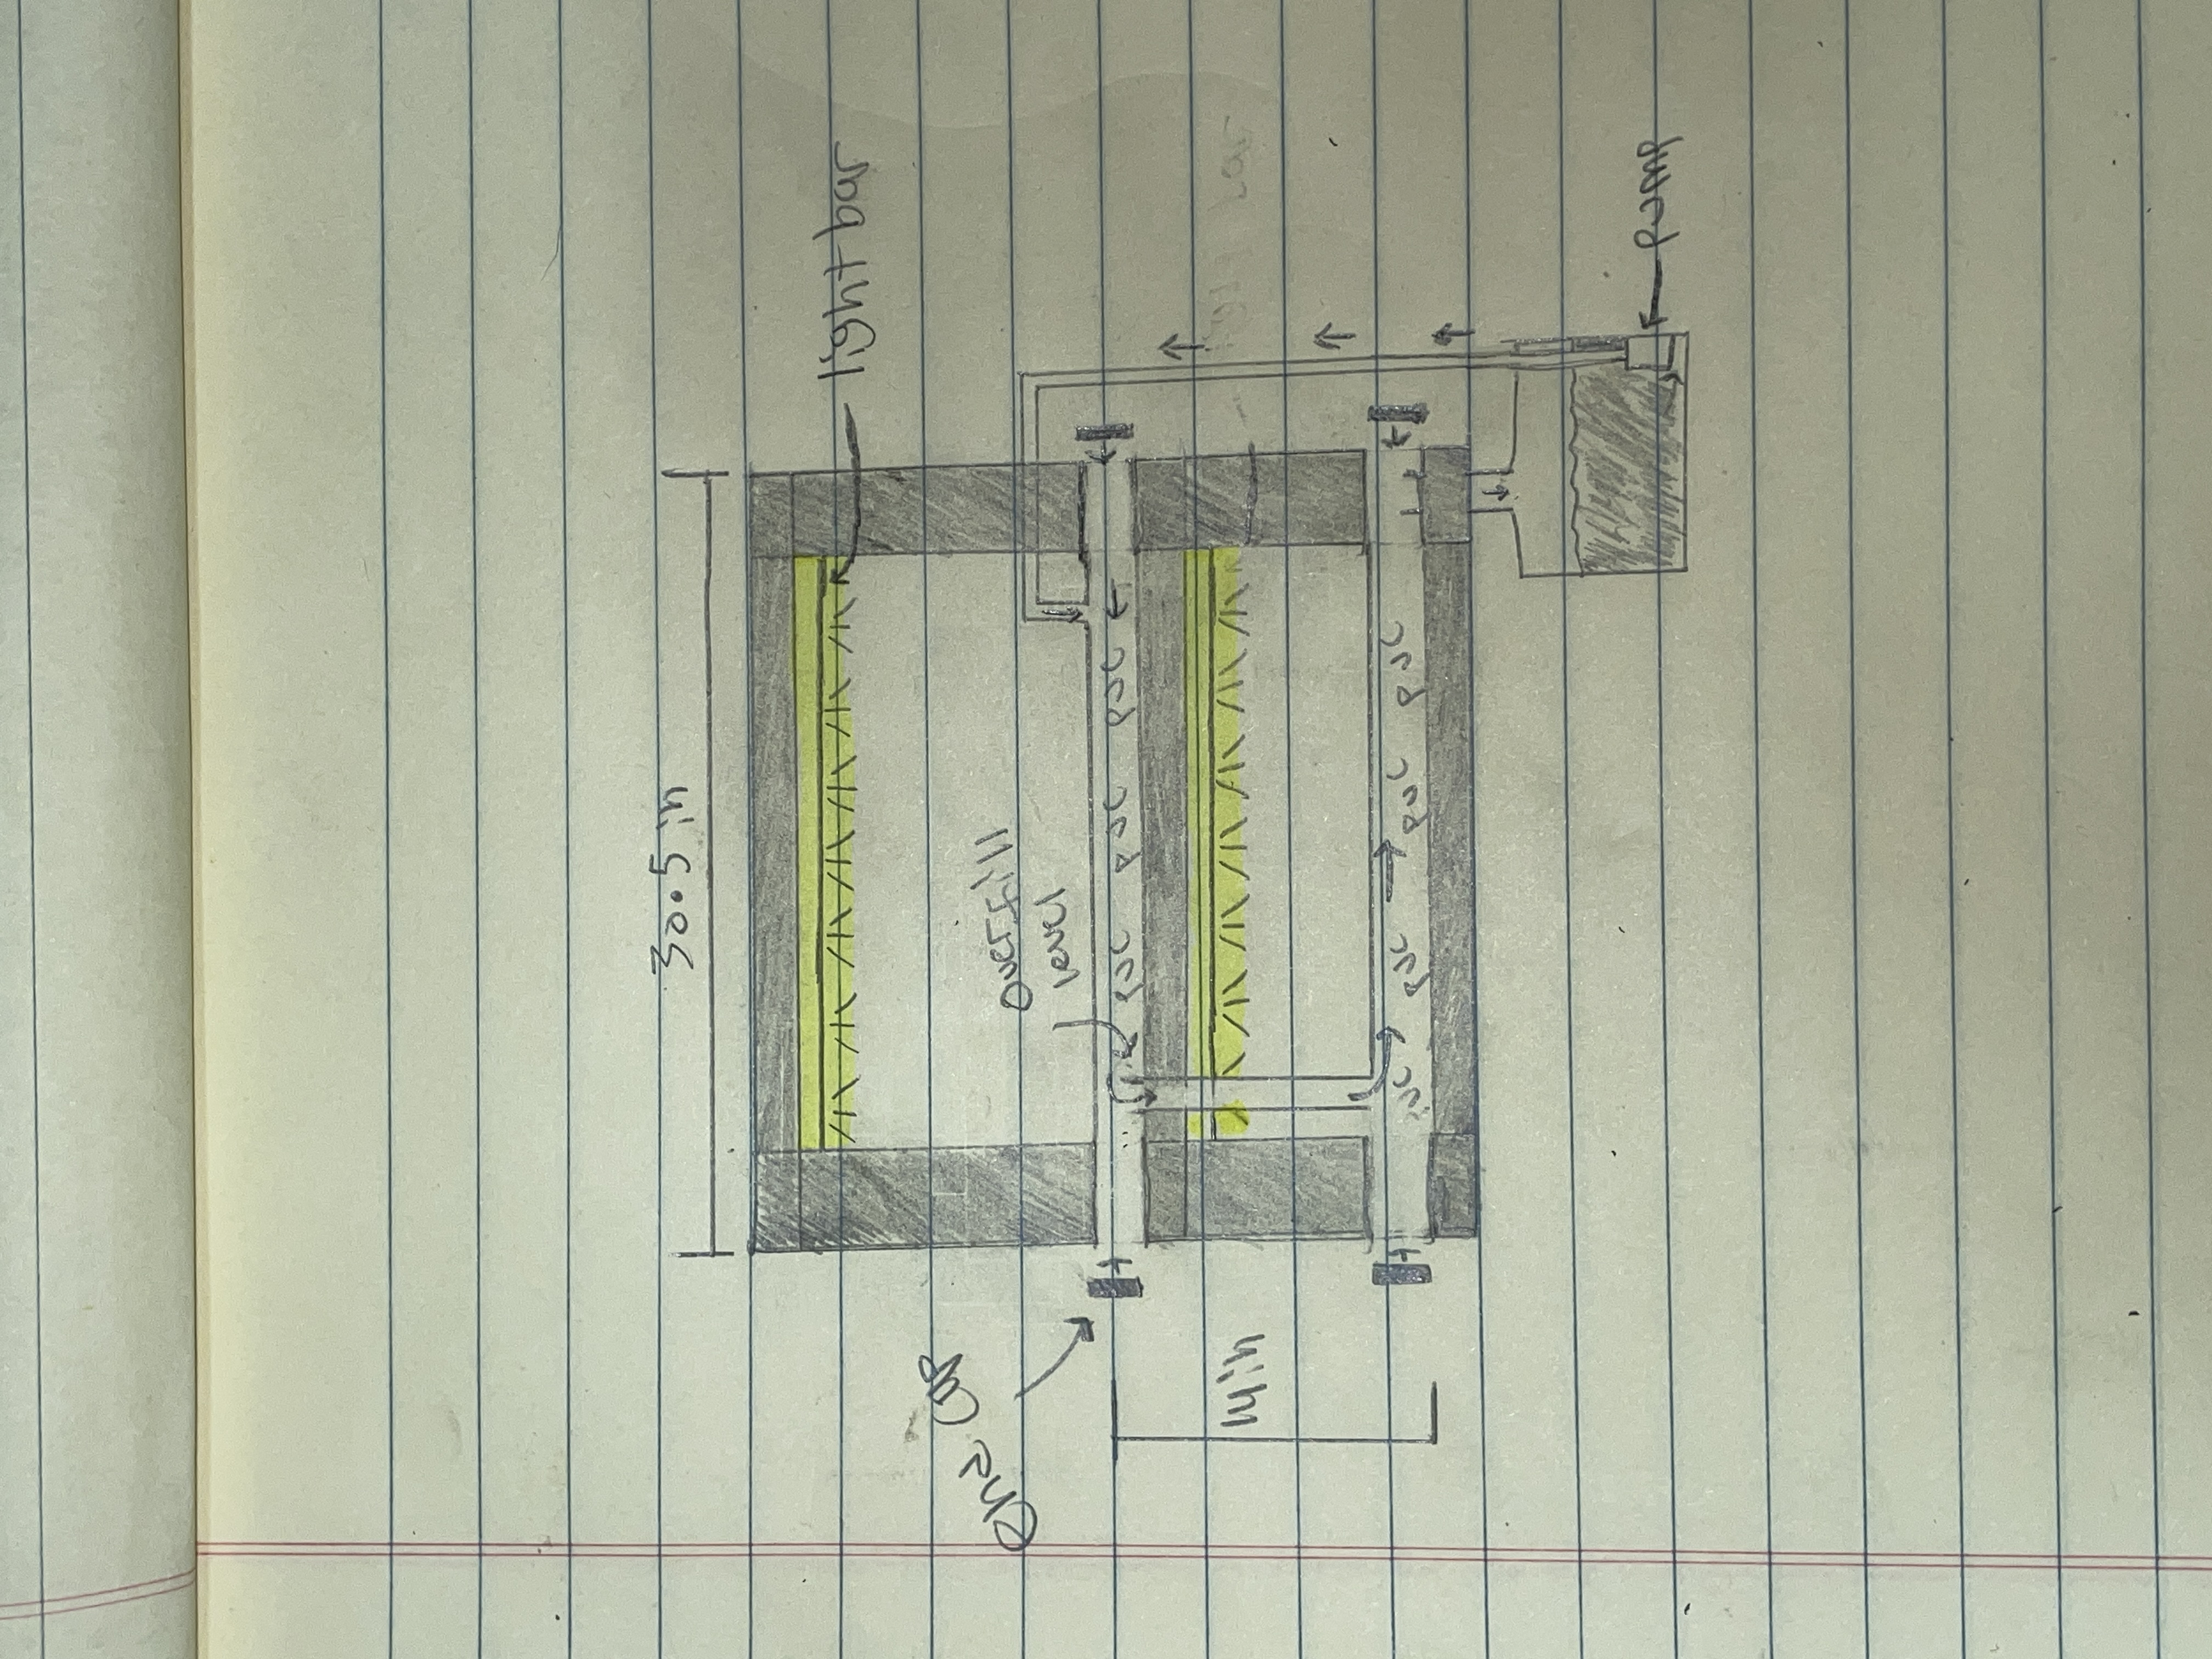 30.5 in
light bar
end cap
overfill
level
PVC PVC PVC
14in
PVC PVC PVC
pump